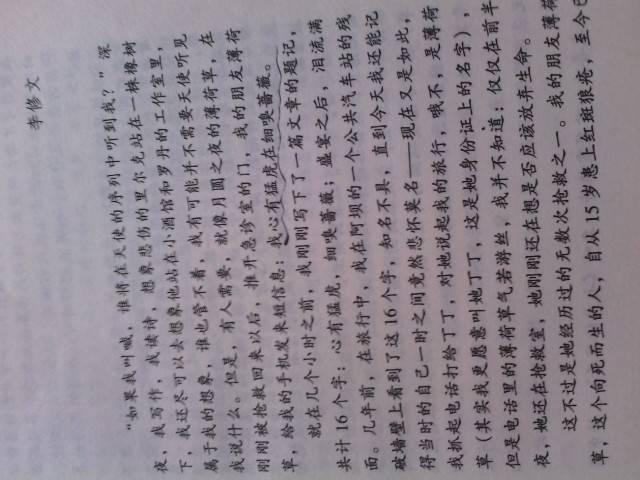 李修文
“如果我叫喊，谁将在天使的序列中听到我？”深
夜，我写作，我读诗，想象悲伤的里尔克站在一株橡树
下，我还尽可以去想象他站在小酒馆和罗丹的工作室里，
属于我的想象，谁也管不着，我有可能并不需要天使听见
我说什么。但是，有人需要，就像月圆之夜的薄荷草，在
刚刚被抢救回来以后，推开急诊室的门，我的朋友薄荷
草，给我的手机发来短信息：我心有猛虎在细嗅蔷薇。
就在几个小时之前，我刚刚写下了一篇文章的题记，
共计16个字：心有猛虎，细嗅蔷薇；盛宴之后，泪流满
面。几年前，在旅行中，我在阿坝的一个公共汽车站的残
破墙壁上看到了这16个字，知名不具，直到今天我还能记
得当时的自己一时之间竟然悲怀莫名——现在又是如此，
我抓起电话打给丁丁，对她说起我的旅行，哦不，是薄荷
草（其实我更愿意叫她丁丁，这是她身份证上的名字），
但是电话里的薄荷草气若游丝，我并不知道：仅仅在前半
夜，她还在抢救室，她刚刚还在想是否应该放弃生命。
这不过是她经历过的无数次抢救之一。我的朋友薄荷
草，这个向死而生的人，自从15岁患上红斑狼疮，至今已